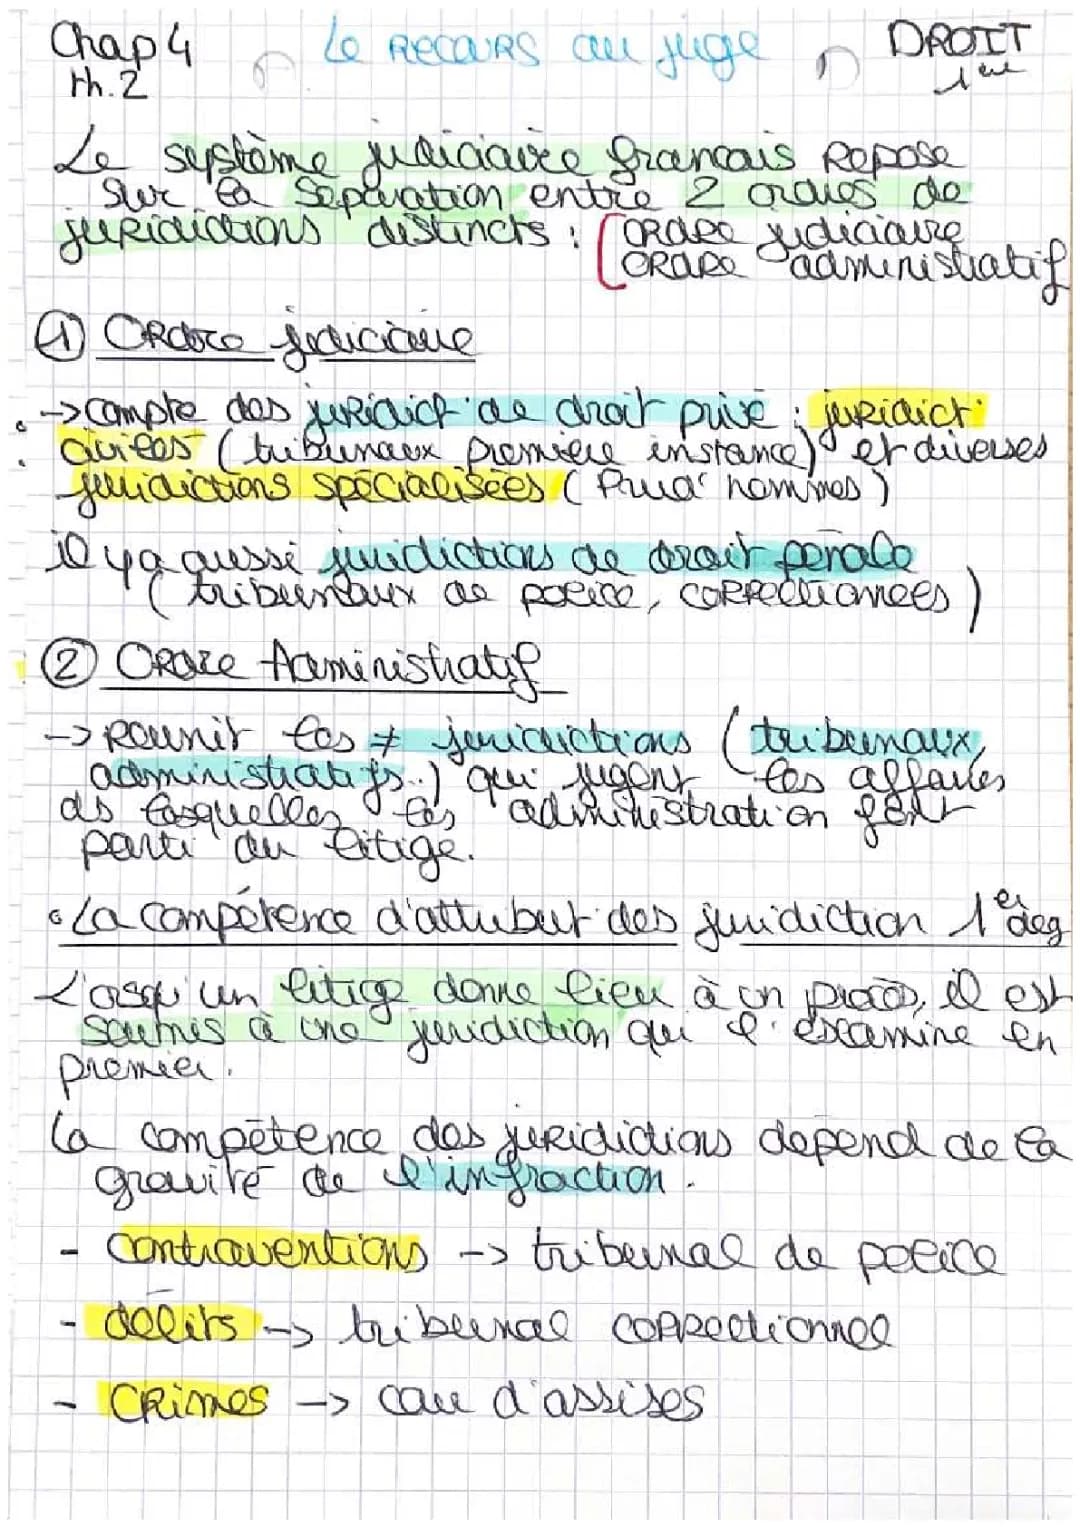 Chap 4 Le RECOURS au juge DROIT
th. 2 1ère
Le système judiciaire français repose
sur la séparation entre 2 ordres de
juridictions distincts : ordre judiciaire
ordre administratif
① Ordre judiciaire
-> compte des juridict° de droit privé : juridict°
civiles (tribunaux première instance) et diverses
juridictions spécialisées (Prud'hommes)
il y a aussi juridictions de droit pénale
(tribunaux de police, correctionnels)
② Ordre Administratif
-> Réunit les ≠ juridictions (tribunaux
administratifs..) qui jugent les affaires
ds lesquelles les administration font
parti du litige.
• La compétence d'attribut° des juridiction 1er deg
L'orsqu'un litige donne lieu à un procès, il est
soumis à une juridiction qui l'examine en
premier.
La compétence des juridictions dépend de la
gravité de l'infraction.
- contraventions -> tribunal de police
- délits -> tribunal correctionnel
- CRimes -> cour d'assises